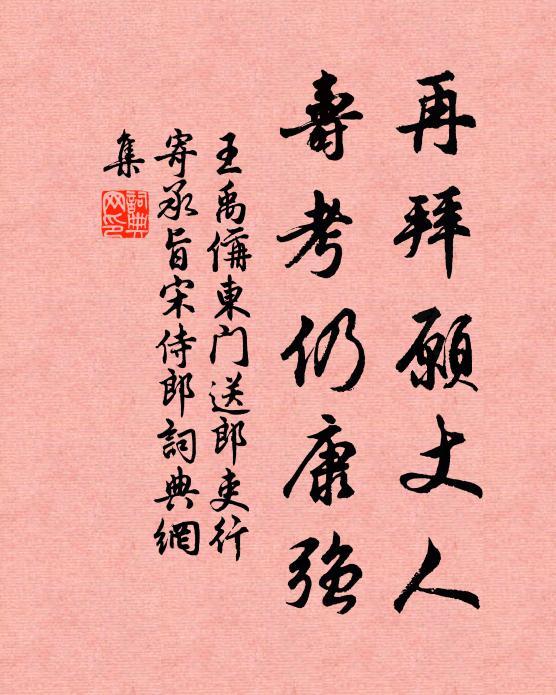 再拜願丈人
壽考仍康強
王禹偁東門送郎吏行
寄承旨宋侍郎詞典網
集
詞典網印